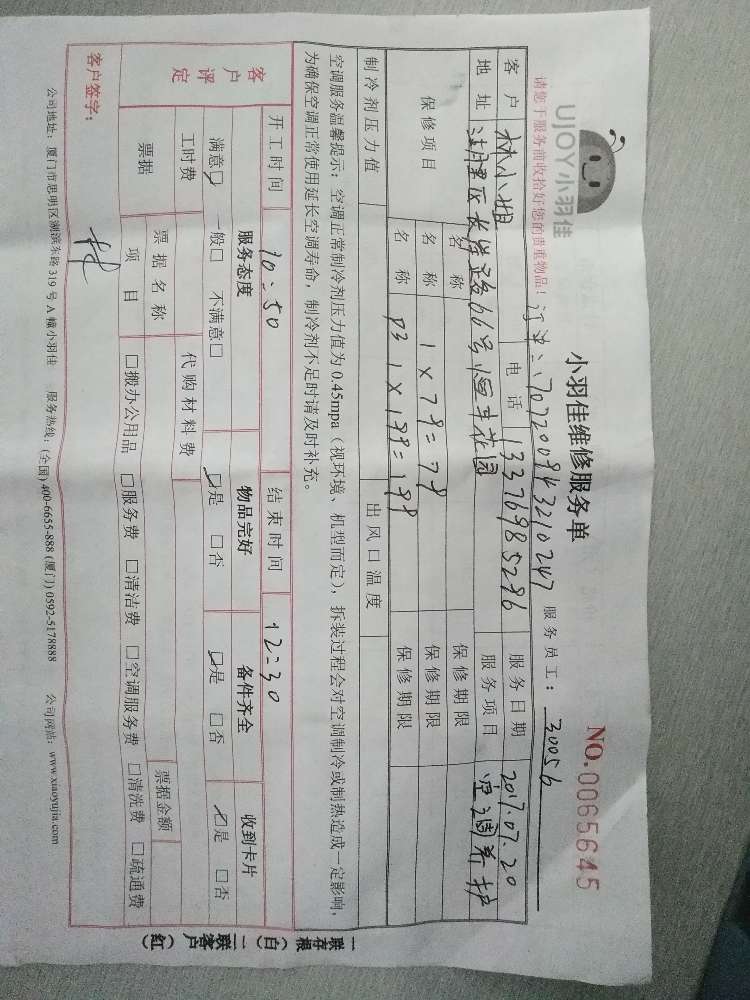 UJOY小羽佳
小羽佳维修服务单
NO.0065645
请您于服务前收拾好您的贵重物品！
订单：1707200943210247
服务员工：30056
客户 林小姐 电话 13376985296 服务日期 2017.07.20
地址 湖里区长岸路66号恒丰花园 服务项目 空调养护
保修项目 名称 保修期限
名称 1×79=79 保修期限
名称 P3 1×199=199 保修期限
制冷剂压力值 出风口温度
空调服务温馨提示：空调正常制冷剂压力值为0.45mpa（视环境、机型而定），拆装过程会对空调制冷或制热造成一定影响，
为确保空调正常使用延长空调寿命，制冷剂不足时请及时补充。
开工时间 10:50 结束时间 12:30
客户评定 服务态度 物品完好 备件齐全 收到卡片
满意□ 一般□ 不满意□ □是 □否 □是 □否 □是 □否
工时费 代购材料费
票据 票据名称 票据金额
项目 □搬办公用品 □服务费 □清洁费 □空调服务费 □清洗费 □疏通费
客户签字： 林
公司地址：厦门市思明区湖滨东路319号A幢小羽佳 服务热线：(全国)400-6655-888 (厦门)0592-5178888 公司网站：www.xiaoyujia.com
一联存根（白）二联客户（红）